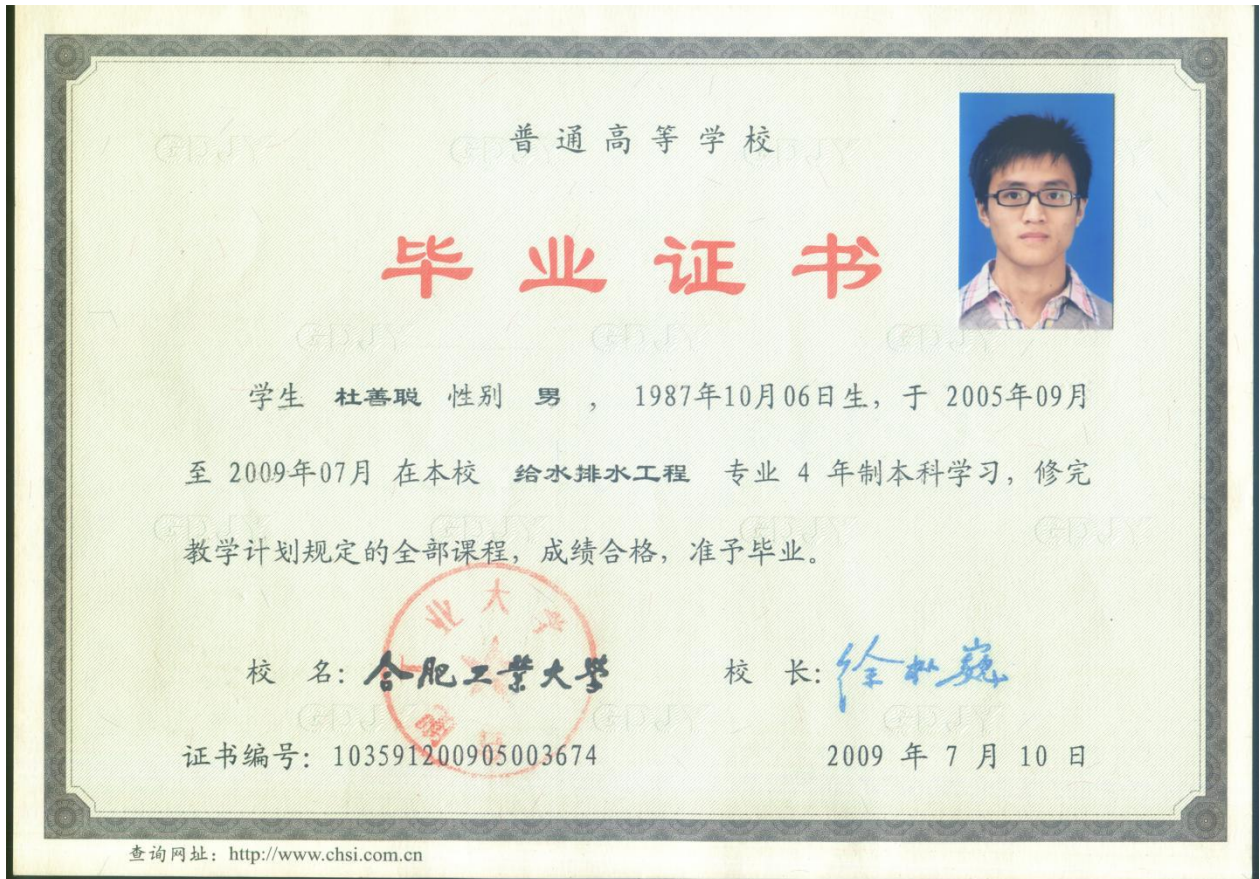 普通高等学校
毕业证书
学生 杜善聪 性别 男 ， 1987年10月06日生，于 2005年09月
至 2009年07月 在本校 给水排水工程 专业 4 年制本科学习，修完
教学计划规定的全部课程，成绩合格，准予毕业。
校 名：合肥工业大學 校 长：徐枞巍
证书编号：103591200905003674 2009 年 7 月 10 日
查询网址：http://www.chsi.com.cn